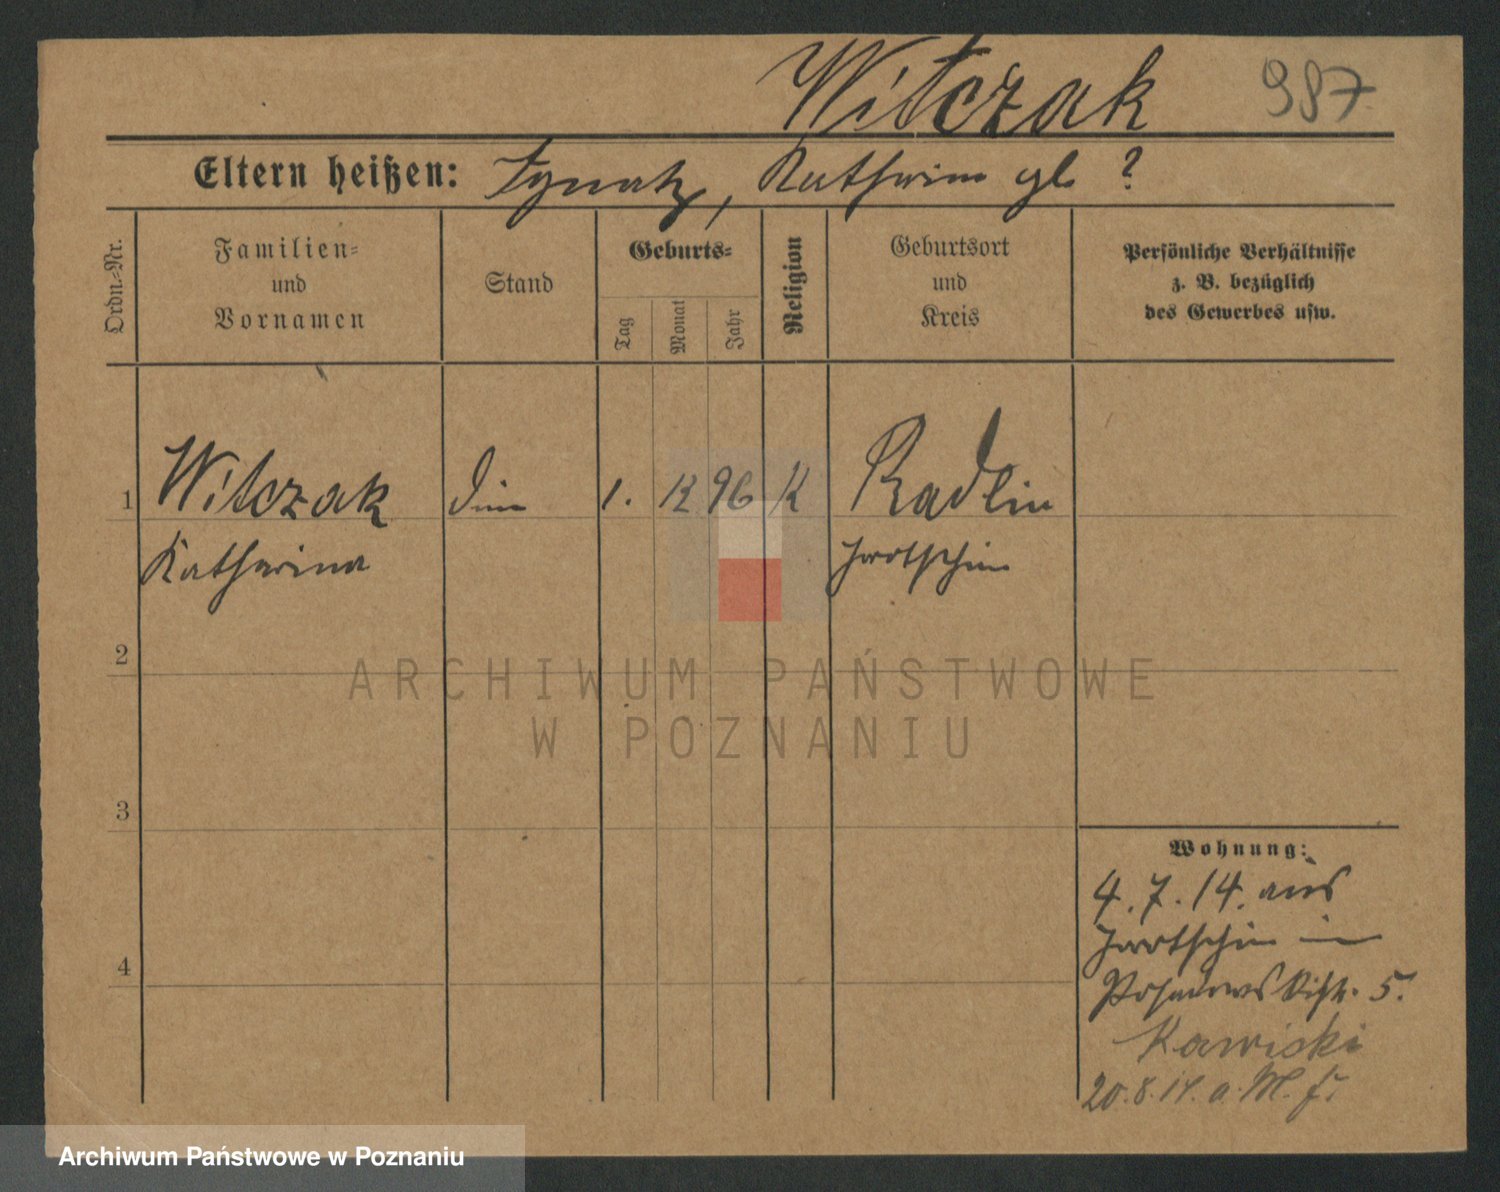 Witczak 987
Eltern heißen: Ignatz, Katharina gb ?
Ordn.-Nr.
Familien-
und
Vornamen
Stand
Geburts-
Tag
Monat
Jahr
Religion
Geburtsort
und
Kreis
Persönliche Verhältnisse
z. B. bezüglich
des Gewerbes usw.
1 Witczak 1. 12 96 K Radlin
Katharina Jarotschin
2
3
4
Wohnung:
4.7.14. aus
Jarotschin in
5.
Kawicki
20.8.14. a. M. f.
ARCHIWUM PAŃSTWOWE
W POZNANIU
Archiwum Państwowe w Poznaniu